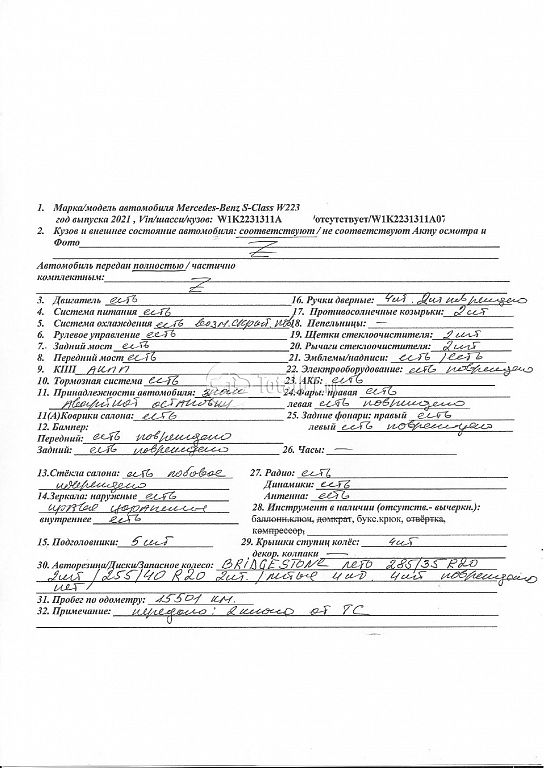 1. Марка/модель автомобиля Mercedes-Benz S-Class W223
год выпуска 2021 , Vin/шасси/кузов: W1K2231311A /отсутствует/W1K2231311A07
2. Кузов и внешнее состояние автомобиля: соответствуют / не соответствуют Акту осмотра и
Фото Z
Автомобиль передан полностью / частично
комплектным: Z
3. Двигатель есть 16. Ручки дверные: 4шт. 2шт повреждено
4. Система питания есть 17. Противосолнечные козырьки: 2шт
5. Система охлаждения есть возм. скрыт. 18. Пепельницы: —
6. Рулевое управление есть 19. Щетки стеклоочистителя: 2шт
7. Задний мост есть 20. Рычаги стеклоочистителя: 2шт
8. Передний мост есть 21. Эмблемы/надписи: есть /есть
9. КПП АКПП 22. Электрооборудование: есть повреждено
10. Тормозная система есть 23. АКБ: есть
11. Принадлежности автомобиля: знак 24. Фары: правая есть
аварийной остановки левая есть повреждено
11(А)Коврики салона: есть 25. Задние фонари: правый есть
12. Бампер: левый есть повреждено
Передний: есть повреждено
Задний: есть повреждено 26. Часы: —
13.Стёкла салона: есть лобовое 27. Радио: есть
повреждено Динамики: есть
14.Зеркала: наружные есть Антенна: есть
правое царапины 28. Инструмент в наличии (отсутств.- вычеркн.):
внутреннее есть баллонн.ключ, домкрат, букс.крюк, отвёртка,
компрессор,
15. Подголовники: 5 шт 29. Крышки ступиц колёс: 4шт
декор. колпаки —
30. Авторезина/Диски/Запасное колесо: BRIDGESTONE лето 285/35 R20
2шт / 255/40 R20 2шт. / литые 4шт повреждено
нет/
31. Пробег по одометру: 15501 км.
32. Примечание: передано: 2 ключа от ТС